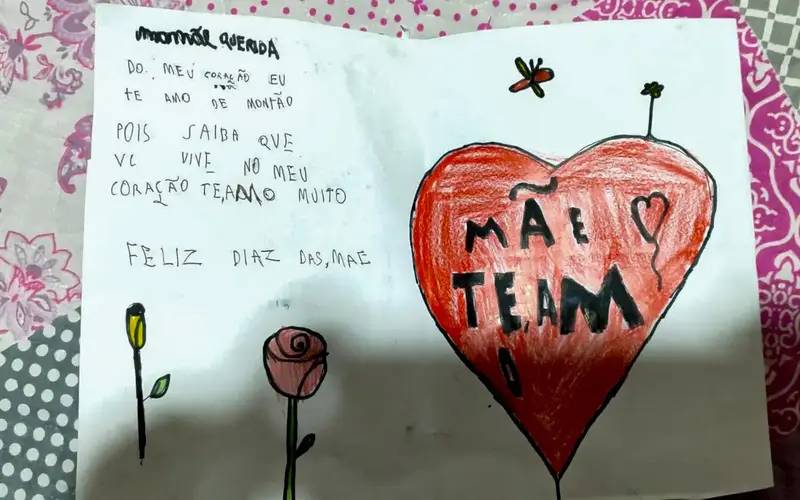 mamãe QUERIDA
DO. MEU CORAÇÃO EU
TE AMO DE MONTÃO
POIS SAIBA QUE
VC VIVE NO MEU
CORAÇÃO TE,AMO MUITO
FELIZ DIAZ DAS,MAE
MÃE
TE,AM
O